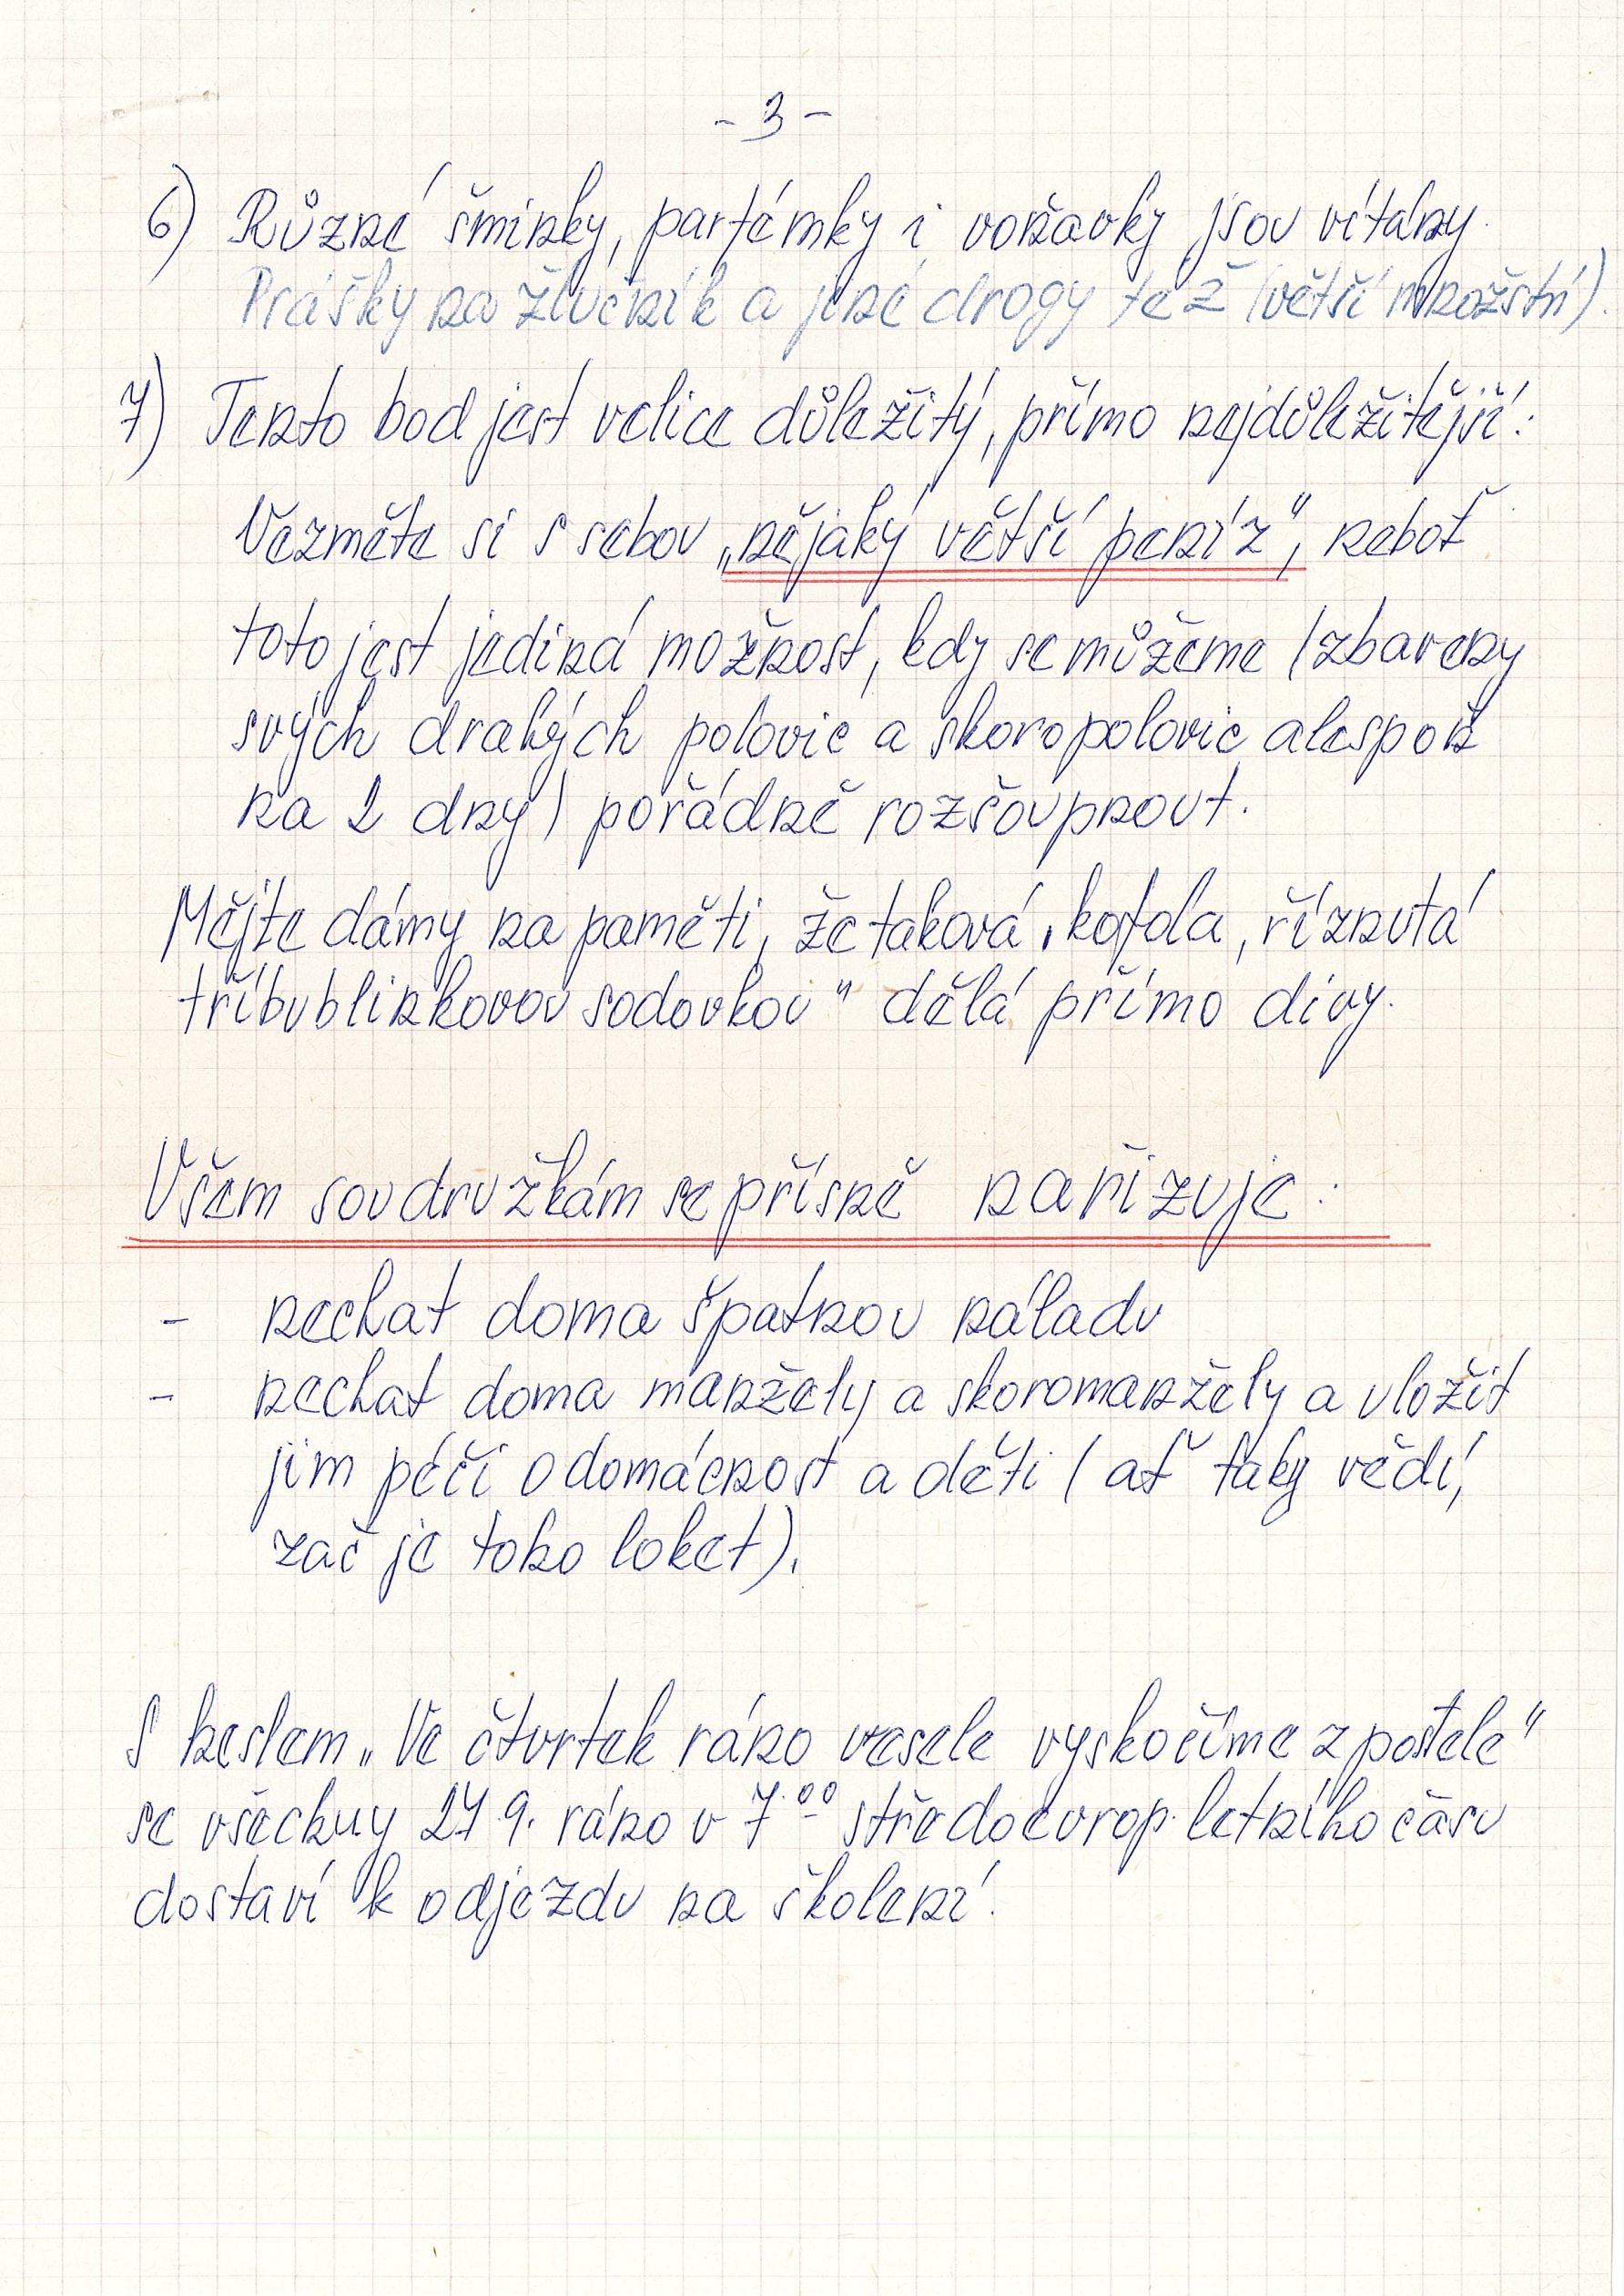 - 3 -
6) Různé šminky, parfémky i voňavky jsou vítány.
Prášky na žlučník a jiné drogy též (větší množství).
7) Tento bod jest velice důležitý, přímo nejdůležitější:
Vezměte si s sebou „nějaký větší peníz", neboť
toto jest jediná možnost, kdy se můžeme (zbaveny
svých drahých polovic a skoropolovic alespoň
na 2 dny) pořádně rozšoupnout.
Mějte dámy na paměti, že taková „kofola, říznutá
tříbublinkovou sodovkou" dělá přímo divy.
Všem soudružkám se přísně nařizuje:
- nechat doma špatnou náladu
- nechat doma manžely a skoromanžely a uložit
jim péči o domácnost a děti (ať taky vědí,
zač je toho loket).
S heslem „Ve čtvrtek ráno vesele vyskočíme z postele"
se všechny 27 9. ráno v 7.00 středoevrop. letního času
dostaví k odjezdu na školení.